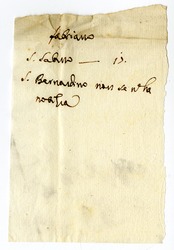 fabriano
S. Sabino — i).
S. Bernardino non se n'ha
notitia